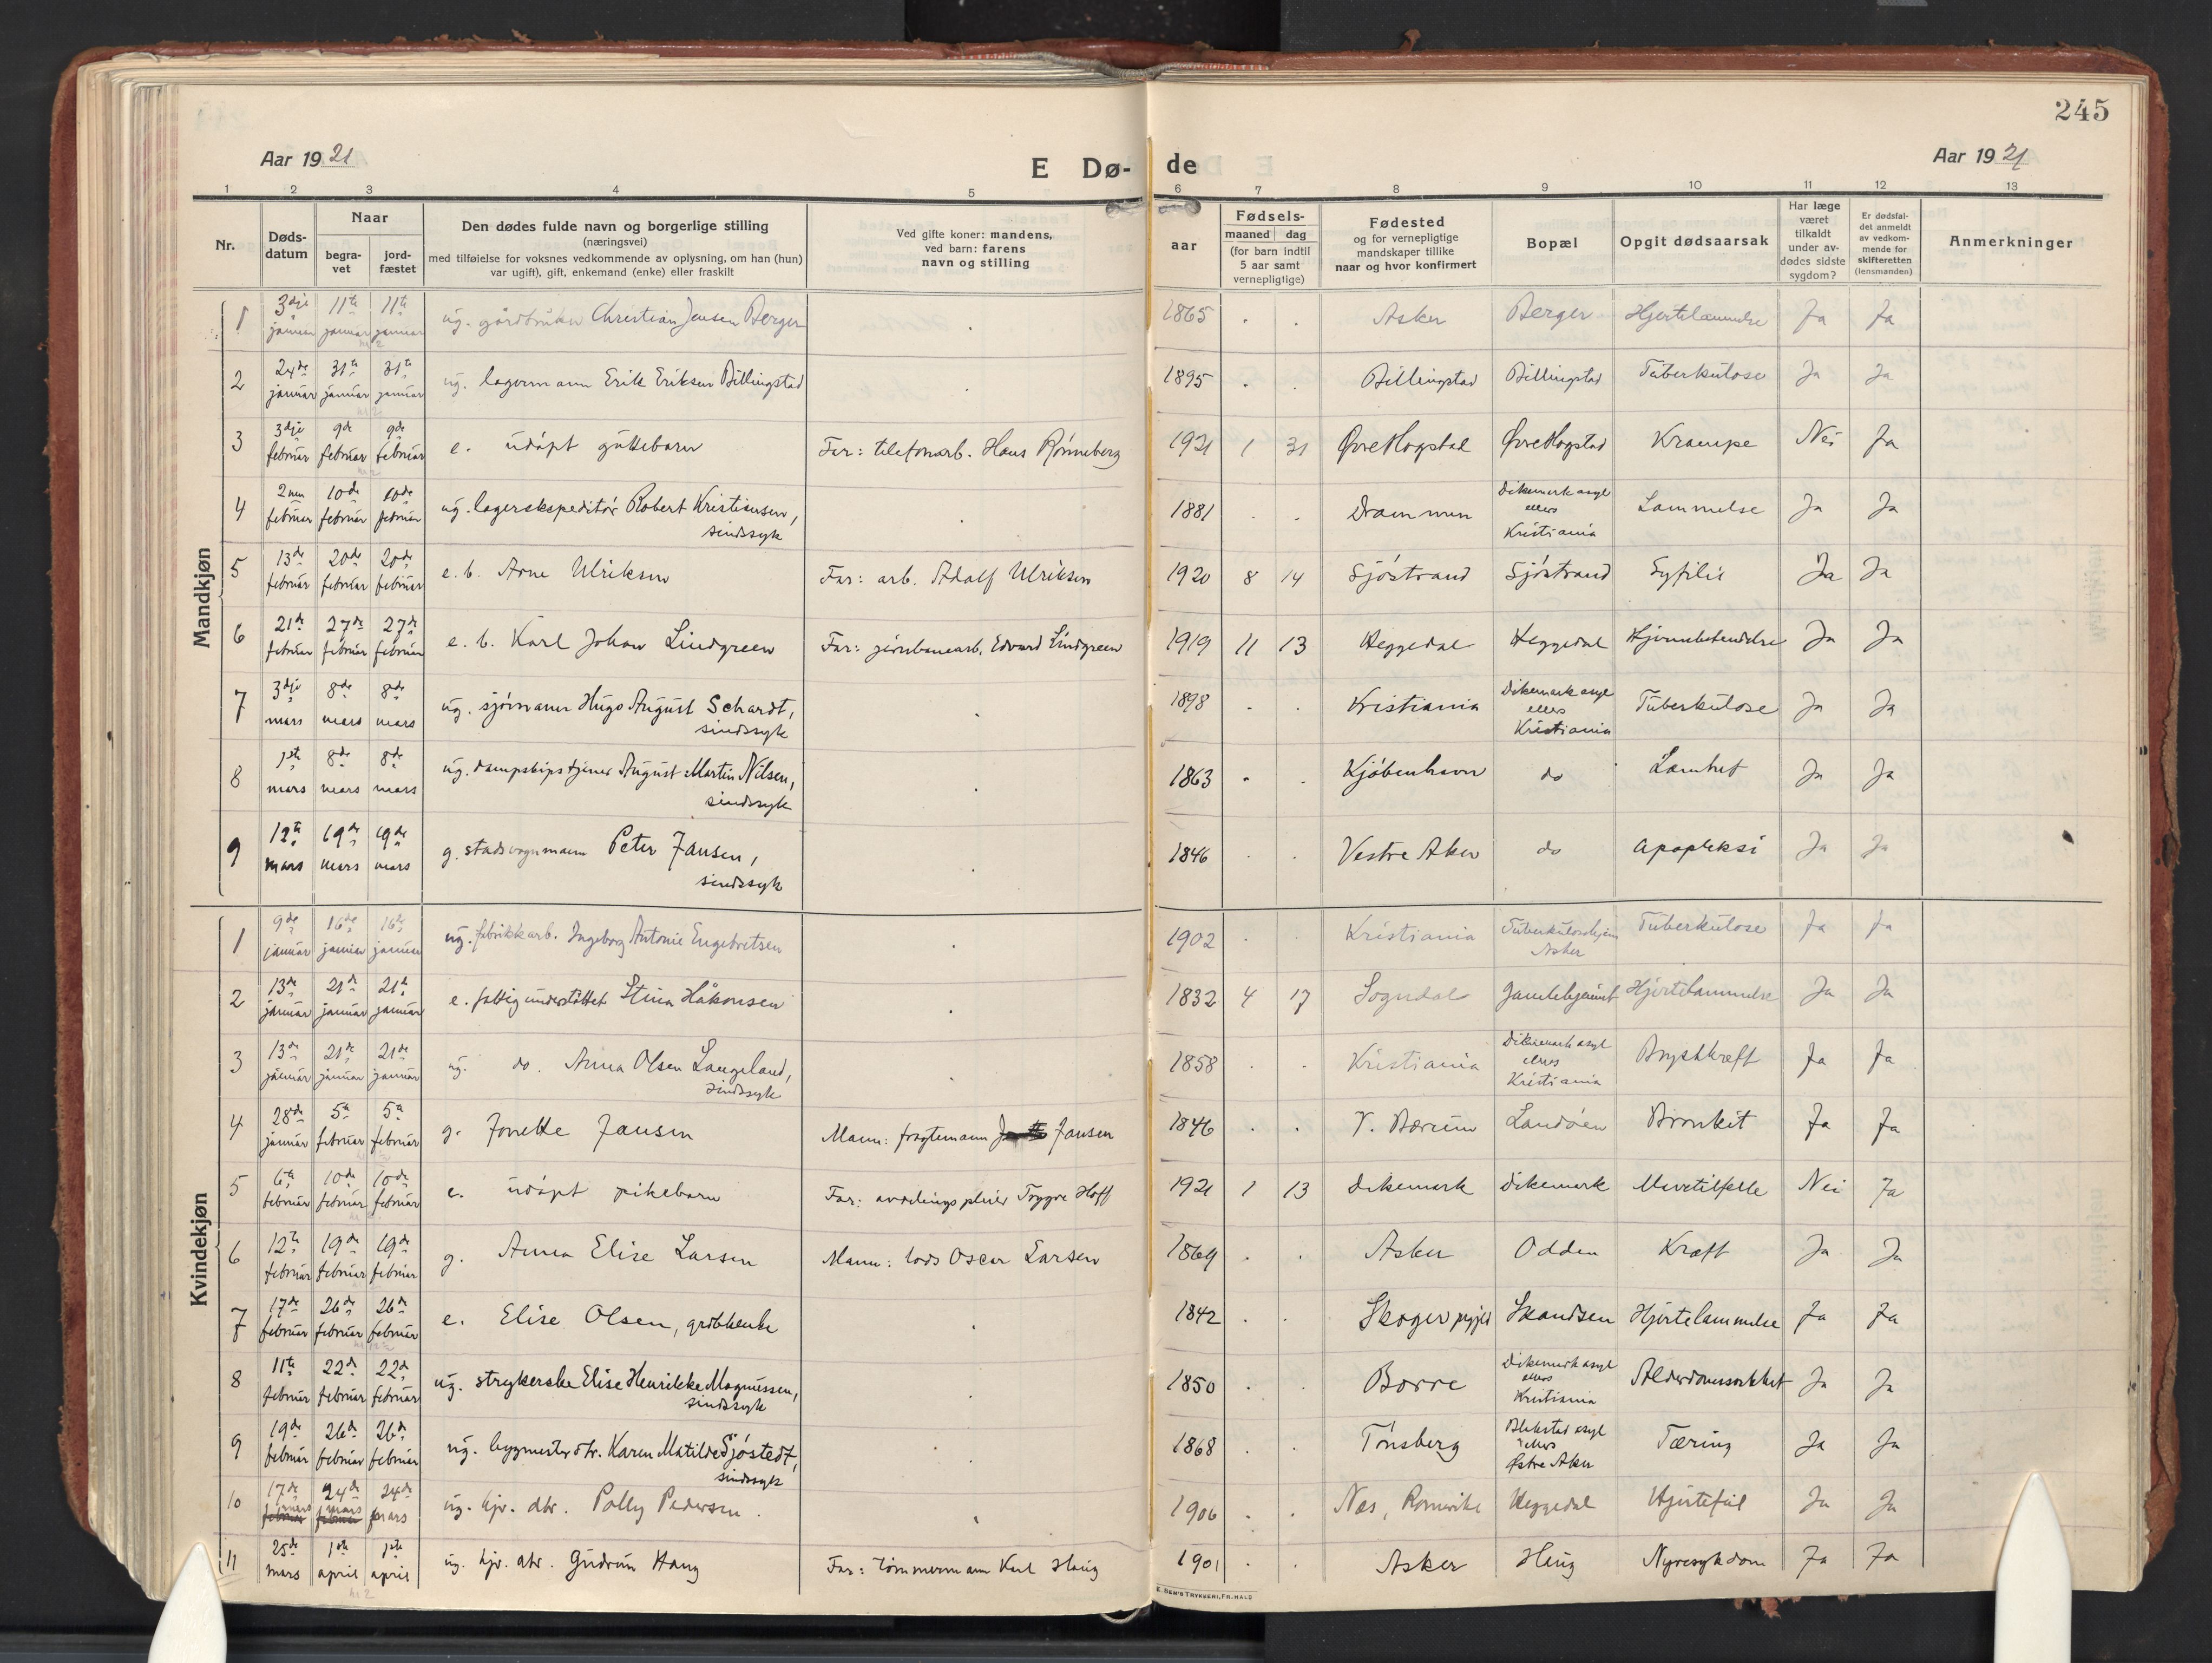 245
Aar 1921
E Dø-de
Aar 1921
1 2 3 4 5 6 7 8 9 10 11 12 13
Nr.
Døds-datum
Naar
begra-vet
jord-fæstet
Den dødes fulde navn og borgerlige stilling
(næringsvei)
med tilføielse for voksnes vedkommende av oplysning, om han (hun)
var ugift), gift, enkemand (enke) eller fraskilt
Ved gifte koner: mandens,
ved barn: farens
navn og stilling
aar
Fødsels-
maaned dag
(for barn indtil
5 aar samt
vernepligtige)
Fødested
og for vernepligtige
mandskaper tillike
naar og hvor konfirmert
Bopæl
Opgit dødsaarsak
Har læge
været
tilkaldt
under av-
dødes sidste
sygdom?
Er dødsfal-
det anmeldt
av vedkom-
mende for
skifteretten
(lensmanden)
Anmerkninger
Mandkjøn
1 3dje januar 11te januar 11te januar ug. gårdbruker Christian Jensen Berger 1865 Asker Berger Hjertelammelse Ja Ja
2 24de januar 31te januar 31te januar ug. lagermann Erik Eriksen Billingstad 1895 Billingstad Billingstad Tuberkulose Ja Ja
3 3dje februar 9de februar 9de februar e. udøpt guttebarn Far: telefonarb. Hans Rønneberg 1921 1 31 Øvre Hogstad Øvre Hogstad Krampe Nei Ja
4 2nen februar 10de februar 10de februar ug. lagerekspeditør Robert Kristiansen, sindssyk 1881 Drammen Dikemark asyl ellers Kristiania Lammelse Ja Ja
5 13de februar 20de februar 20de februar e. b. Arne Ulriksen Far: arb. Adolf Ulriksen 1920 8 14 Sjøstrand Sjøstrand Syfilis Ja Ja
6 21de februar 27de februar 27de februar e. b. Karl Johan Lindgreen Far: jernbanearb. Edvard Lindgreen 1919 11 13 Heggedal Heggedal Hjernebetendelse Ja Ja
7 3dje mars 8de mars 8de mars ug. sjømann Hugo August Schardt, sindssyk 1898 Kristiania Dikemark asyl ellers Kristiania Tuberkulose Ja Ja
8 1ste mars 8de mars 8de mars ug. dampskipstjener August Martin Nilsen, sindssyk 1863 Kjøbenhavn do Lamhet Ja Ja
9 12te mars 19de mars 19de mars g. stadsvognmann Peter Jansen, sindssyk 1846 Vestre Aker do Apopleksi Ja Ja
Kvindekjøn
1 9de januar 16de januar 16de januar ug. fabrikkarb. Ingeborg Antonie Engebretsen 1902 Kristiania Tuberkulosehjem Asker Tuberkulose Ja Ja
2 13de januar 21de januar 21de januar e. fattigunderstøttet Stina Håkonsen 1832 4 17 Sogndal Gamlehjemmet Hjertelammelse Ja Ja
3 13de januar 21de januar 21de januar ug. do. Anna Olsen Langeland, sindssyk 1858 Kristiania Dikemark asyl ellers Kristiania Brystkræft Ja Ja
4 28de januar 5te februar 5te februar g. Jonette Jansen Mann: fragtemann Jansen 1846 V. Bærum Landøen Bronkit Ja Ja
5 6te februar 10de februar 10de februar e. udøpt pikebarn Far: avdelingspleier Trygve Hoff 1921 1 13 Dikemark Dikemark Mavetilfelle Nei Ja
6 12te februar 19de februar 19de februar g. Anna Elise Larsen Mann: lods Oscar Larsen 1869 Asker Odden Kræft Ja Ja
7 17de februar 26de februar 26de februar e. Elise Olsen, grubbenke 1842 Skoger prgjld Skandsen Hjertelammelse Ja Ja
8 11te februar 22de februar 22de februar ug. strykerske Elise Henrikke Magnussen, sindssyk 1850 Borre Dikemark asyl ellers Kristiania Alderdomssvakhet Ja Ja
9 19de februar 26de februar 26de februar ug. bygmesterdtr. Karen Matilde Sjøstedt, sindssyk 1868 Tønsberg Blakstad asyl ellers Østre Aker Tæring Ja Ja
10 17de mars februar 24de mars februar 24de mars ug. hjv. dtr. Polly Pedersen. 1906 Næs, Romerike Heggedal Hjertefeil Ja Ja
11 25de mars 1ste april 1ste april ug. hjv. dtr. Gudrun Haug Far: tømmermann Karl Haug 1901 Asker Haug Nyresykdom Ja Ja
E. SEM'S TRYKKERI, FR.HALD